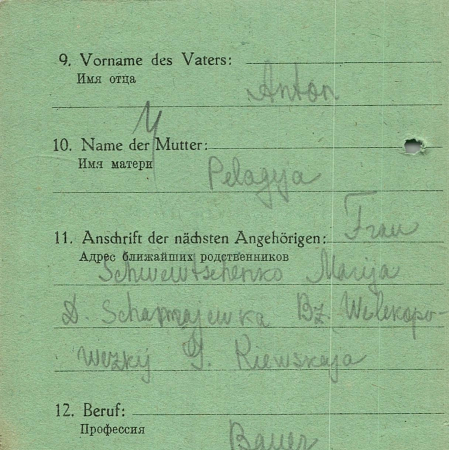 9. Vorname des Vaters:
Имя отца
Anton
10. Name der Mutter:
Имя матери
Pelagya
11. Anschrift der nächsten Angehörigen: Frau
Адрес ближайших родственников
Marija
D. Bz.
G. Kiewskaja
12. Beruf:
Профессия
Bauer